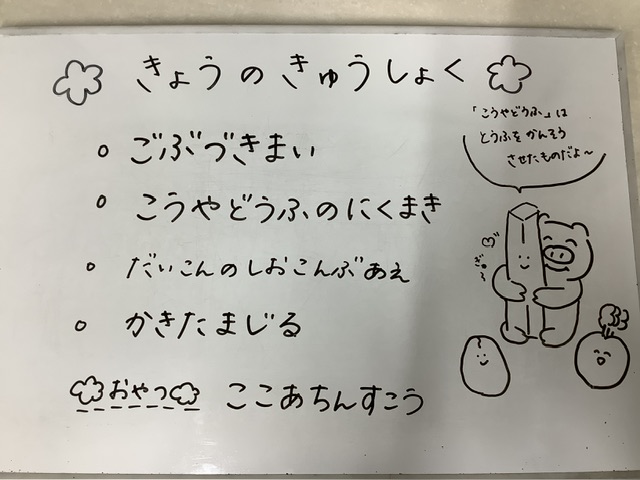 きょうのきゅうしょく
ごぶづきまい
こうやどうふのにくまき
だいこんのしおこんぶあえ
かきたまじる
おやつ ここあちんすこう
「こうやどうふ」は
とうふをかんそう
させたものだよ〜
ぎゅ〜